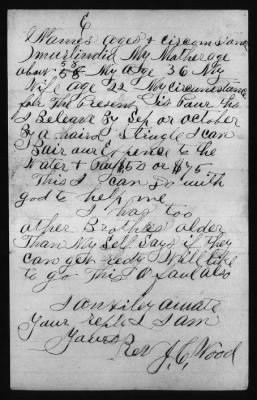 &
Names ages & circumstance
My Mother age
about 58 My age 36 My
Wife age 22 My circumstance
for the present is Pour tho
I Beleave By Sep or October
By a haird Strugle I can
Bair our Expence to the
Water & Pay $50 or $75
This I can Do with
god to help me
I has too
other Brothers older
Than My Self Says if they
can get redy Will like
to go This O faul also
I anxiley awate
Your reply I am
Yours
Rev J. C. Wood